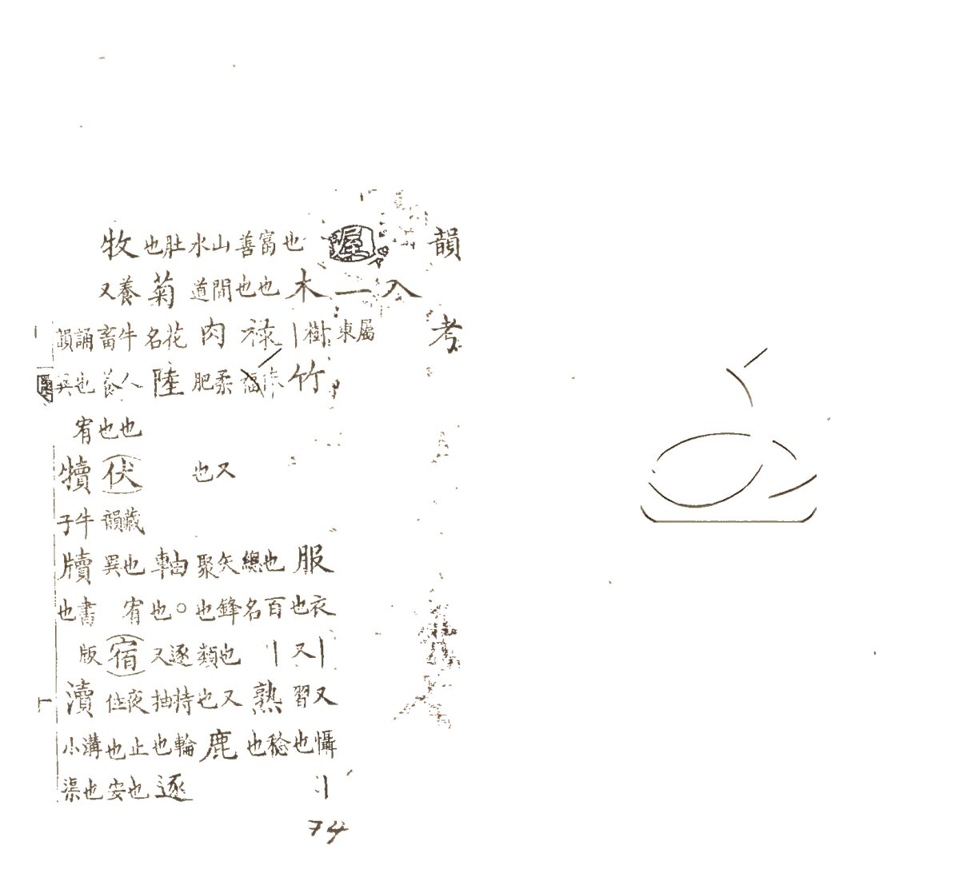 韻考
入
屋一屬東
木樹|竹服衣也|又習又懾也|
富也善也祿福總也百名熟稔也
山間水道肉柔肥又也矢鋒也又聚也類也鹿
肚也菊花名陸軸○逐持輪也又抽也逐
牧養牛人也又畜養也宥伏藏韻也異宥宿夜止也住也安也
誦也韻異犢牛子牘書版也瀆溝也小渠
74